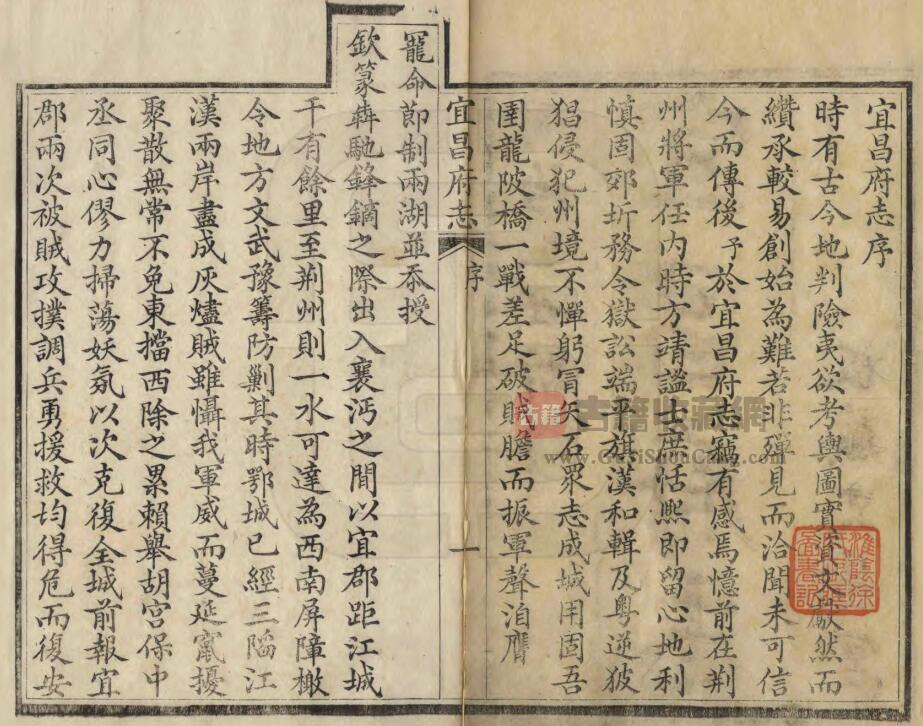 宜昌府志序
時有古今地判險夷欲考輿圖實資文獻然而
纘承較易創始為難若非殫見而洽聞未可信
今而傳後予於宜昌府志竊有感焉憶前在荆
州將軍任內時方靖謐士庶恬熙即留心地利
慎固郊圻務令獄訟端平旗漢和輯及粵逆披
猖侵犯州境不憚躬冒矢石眾志成城用固吾
圉龍陂橋一戰差足破賊膽而振軍聲洎膺
宜昌府志 序 一
寵命節制兩湖並忝授
欽篆犇馳鋒鏑之際出入襄沔之間以宜郡距江城
千有餘里至荆州則一水可達為西南屏障檄
令地方文武豫籌防剿其時鄂城已經三陷江
漢兩岸盡成灰燼賊雖懾我軍威而蔓延竄擾
聚散無常不免東擋西除之累賴舉胡宮保中
丞同心僇力掃蕩妖氛以次克復全城前報宜
郡兩次被賊攻撲調兵勇援救均得危而復安
古籍收藏网
古籍
www.GuJiShouCang.com